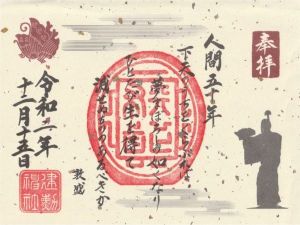 奉拝
人間五十年
下天のうちをくらぶれば
夢まぼろしの如くなり
ひとたび生を得て
滅せぬもののあるべきか
敦盛
令和二年
十一月十五日
建勲神社